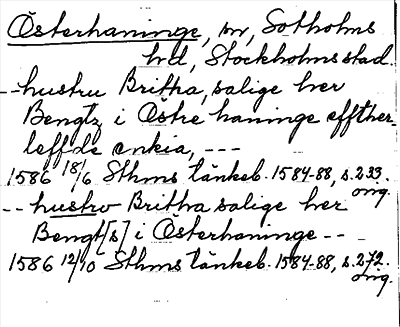 Österhaninge, sn, Sotholms
hd, Stockholms stad.
--hustru Britha, salige her
Bengtz i Östre haninge effther
leffde enkia, ---
1586 18/6 Sthms tänkeb. 1584-88, s. 233.
orig.
--hustrv Britha salige her
Bengt[s] i Österhaninge--
1586 12/10 Sthms tänkeb. 1584-88, s. 272.
orig.